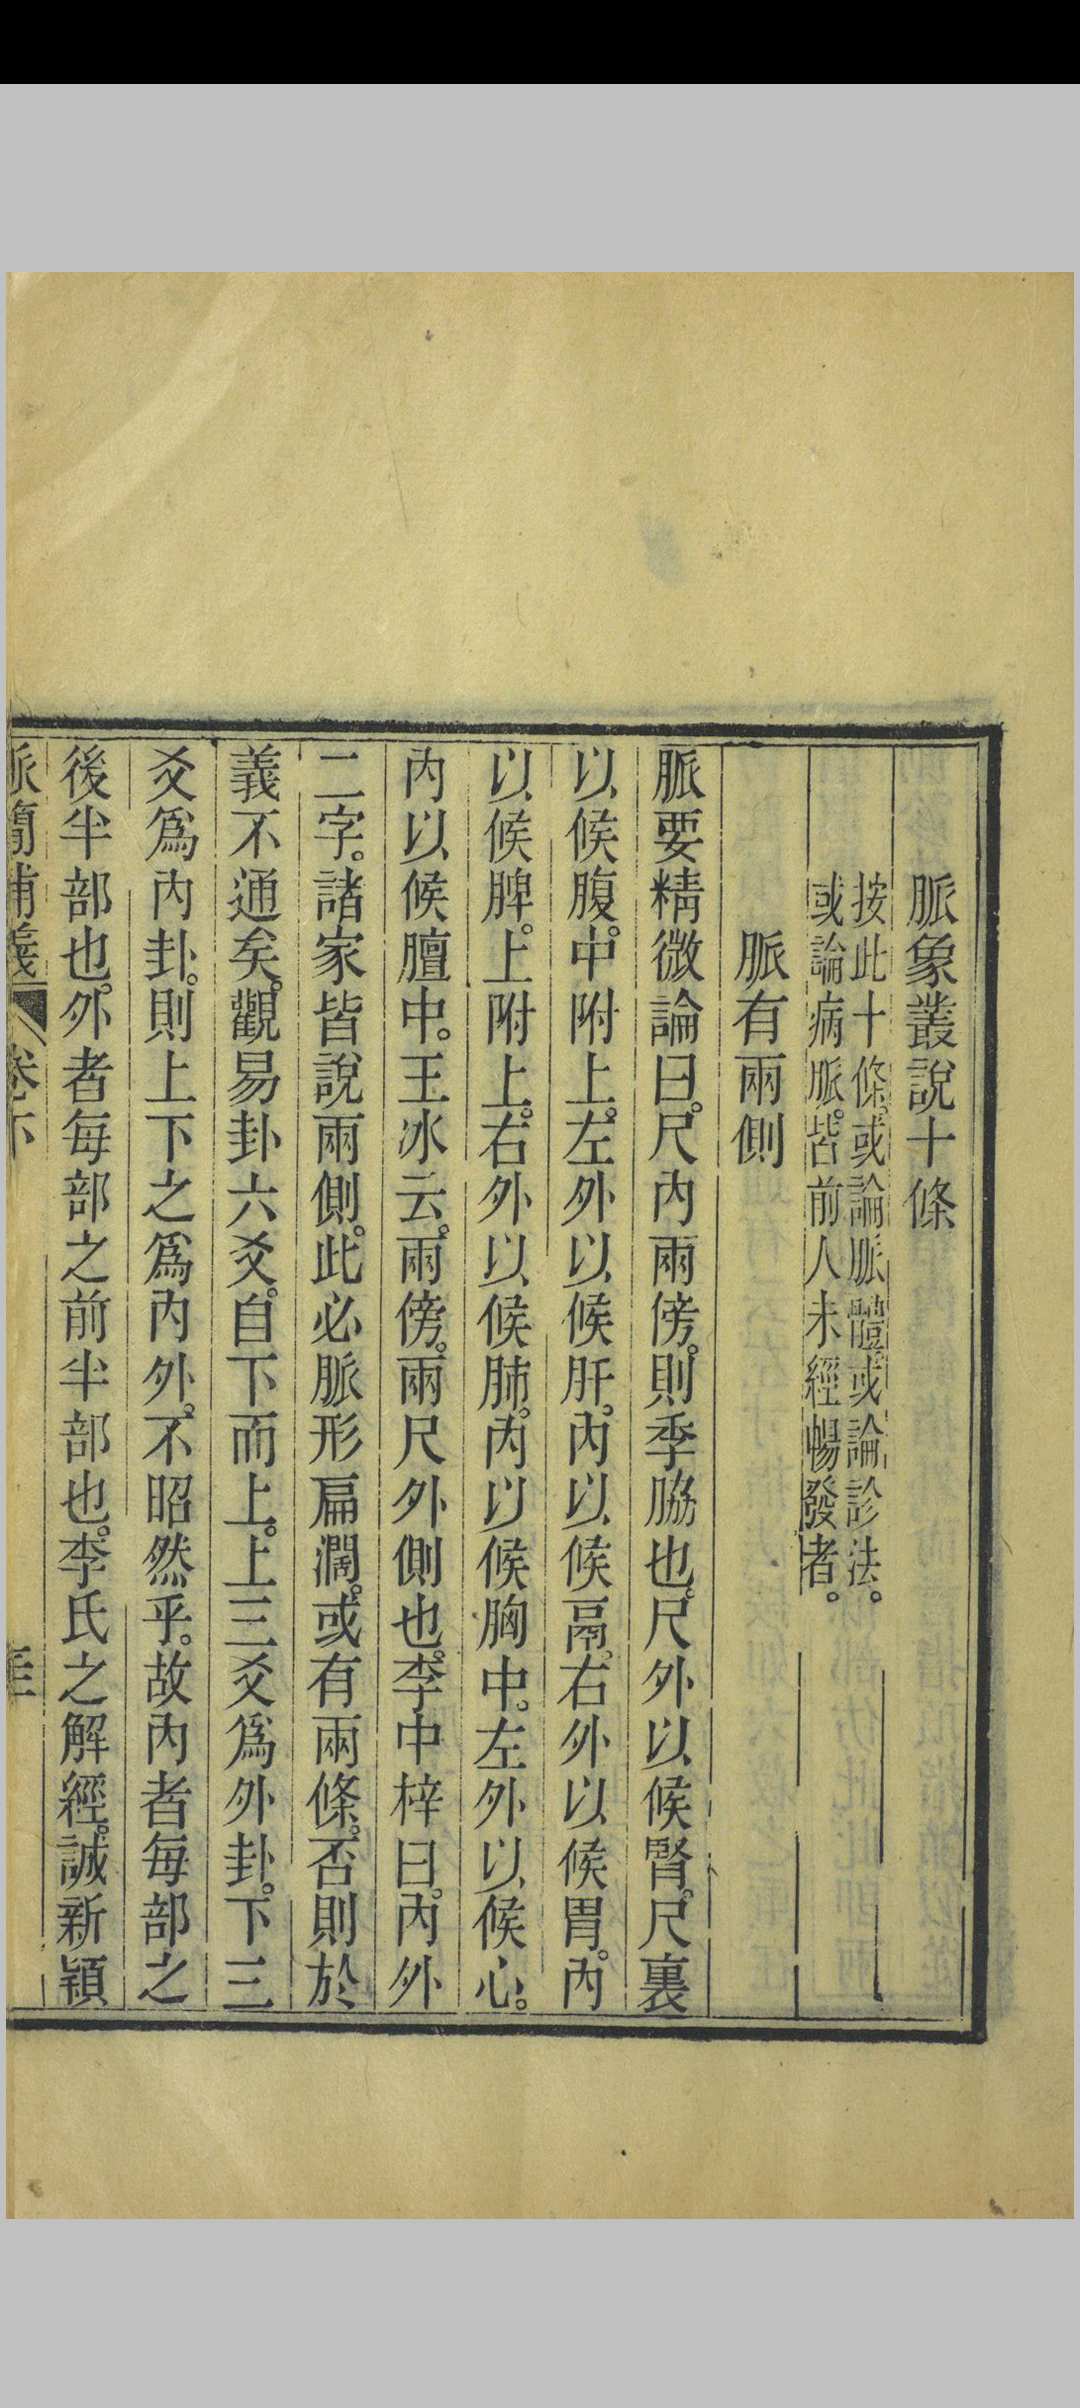 脈象叢說十條
按此十條。或論脈體或論診法。
或論病脈。皆前人未經暢發者。
脈有兩側
脈要精微論曰。尺內兩傍。則季脇也。尺外以候腎。尺裏
以候腹。中附上。左外以候肝。內以候鬲。右外以候胃。內
以候脾。上附上。右外以候肺。內以候胸中。左外以候心。
內以候膻中。王冰云。兩傍。兩尺外側也。李中梓曰。內外
二字。諸家皆說兩側。此必脈形扁濶。或有兩條。否則於
義不通矣。觀易卦六爻。自下而上。上三爻爲外卦。下三
爻爲內卦。則上下之爲內外。不昭然乎。故內者每部之
後半部也。外者每部之前半部也。李氏之解經。誠新穎
脈簡補義 卷下